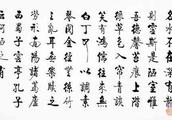 則靈斯是陋室惟
吾德馨苔痕上階
綠草色入簾青談
笑有鴻儒往來無
白丁可以調素
琴閱金經無絲竹
勞形南陽諸葛廬
西蜀子雲亭孔子
云何陋之有